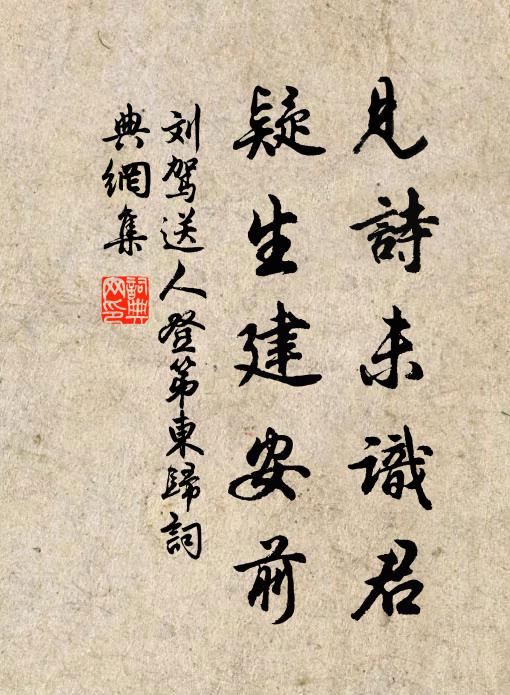 見詩未識君
疑生建安前
刘駕送人登第東歸詞
典網集
詞典
网印